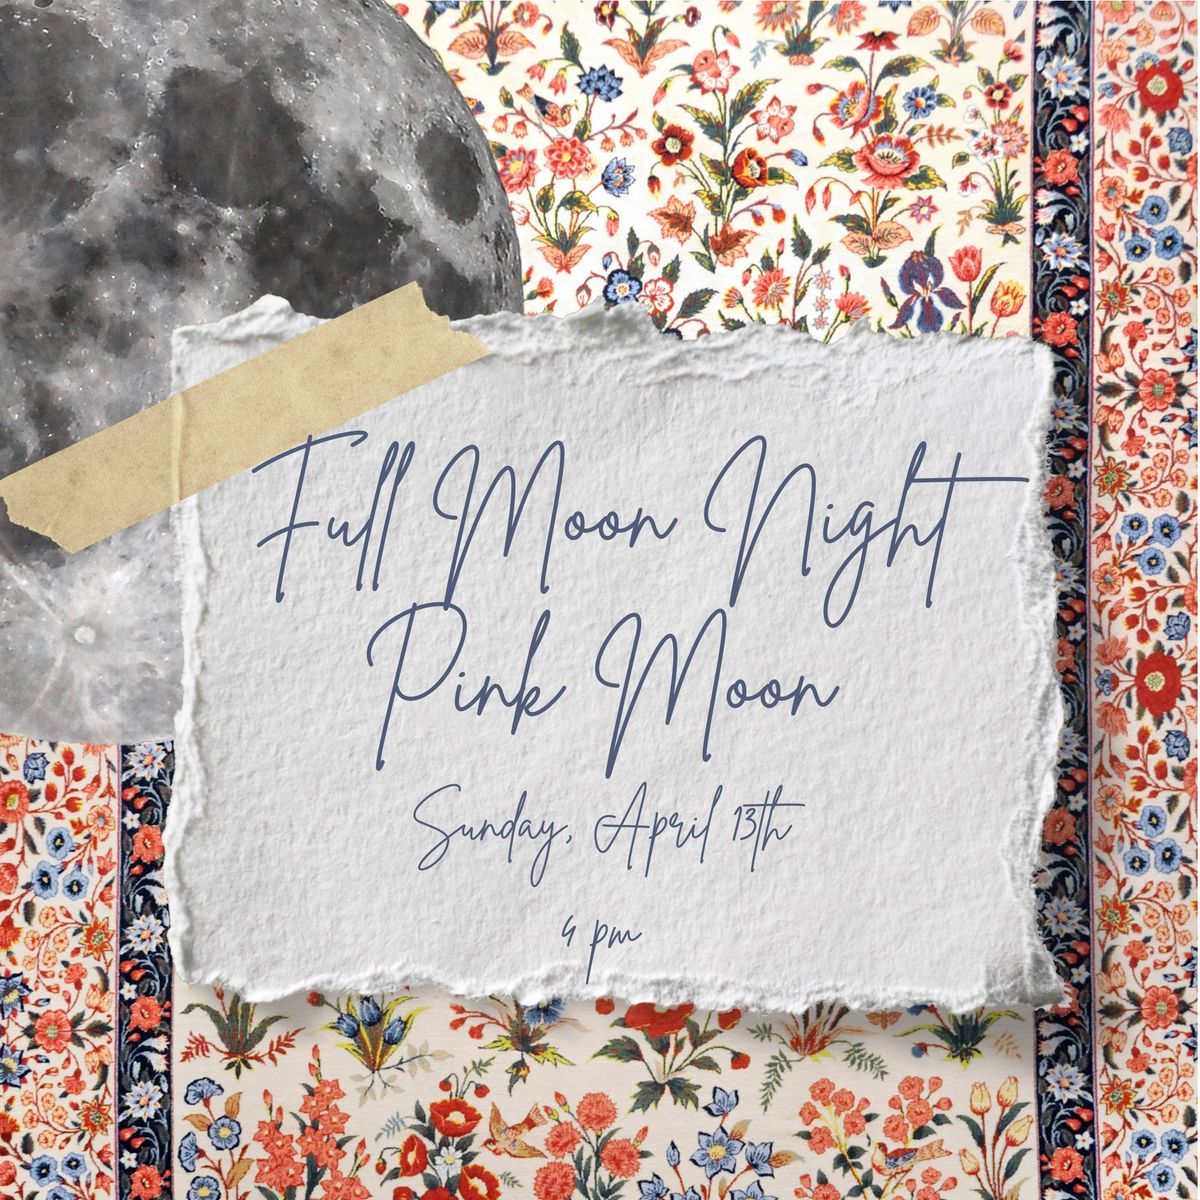 Full Moon Night
Pink Moon
Sunday, April 13th
4 pm